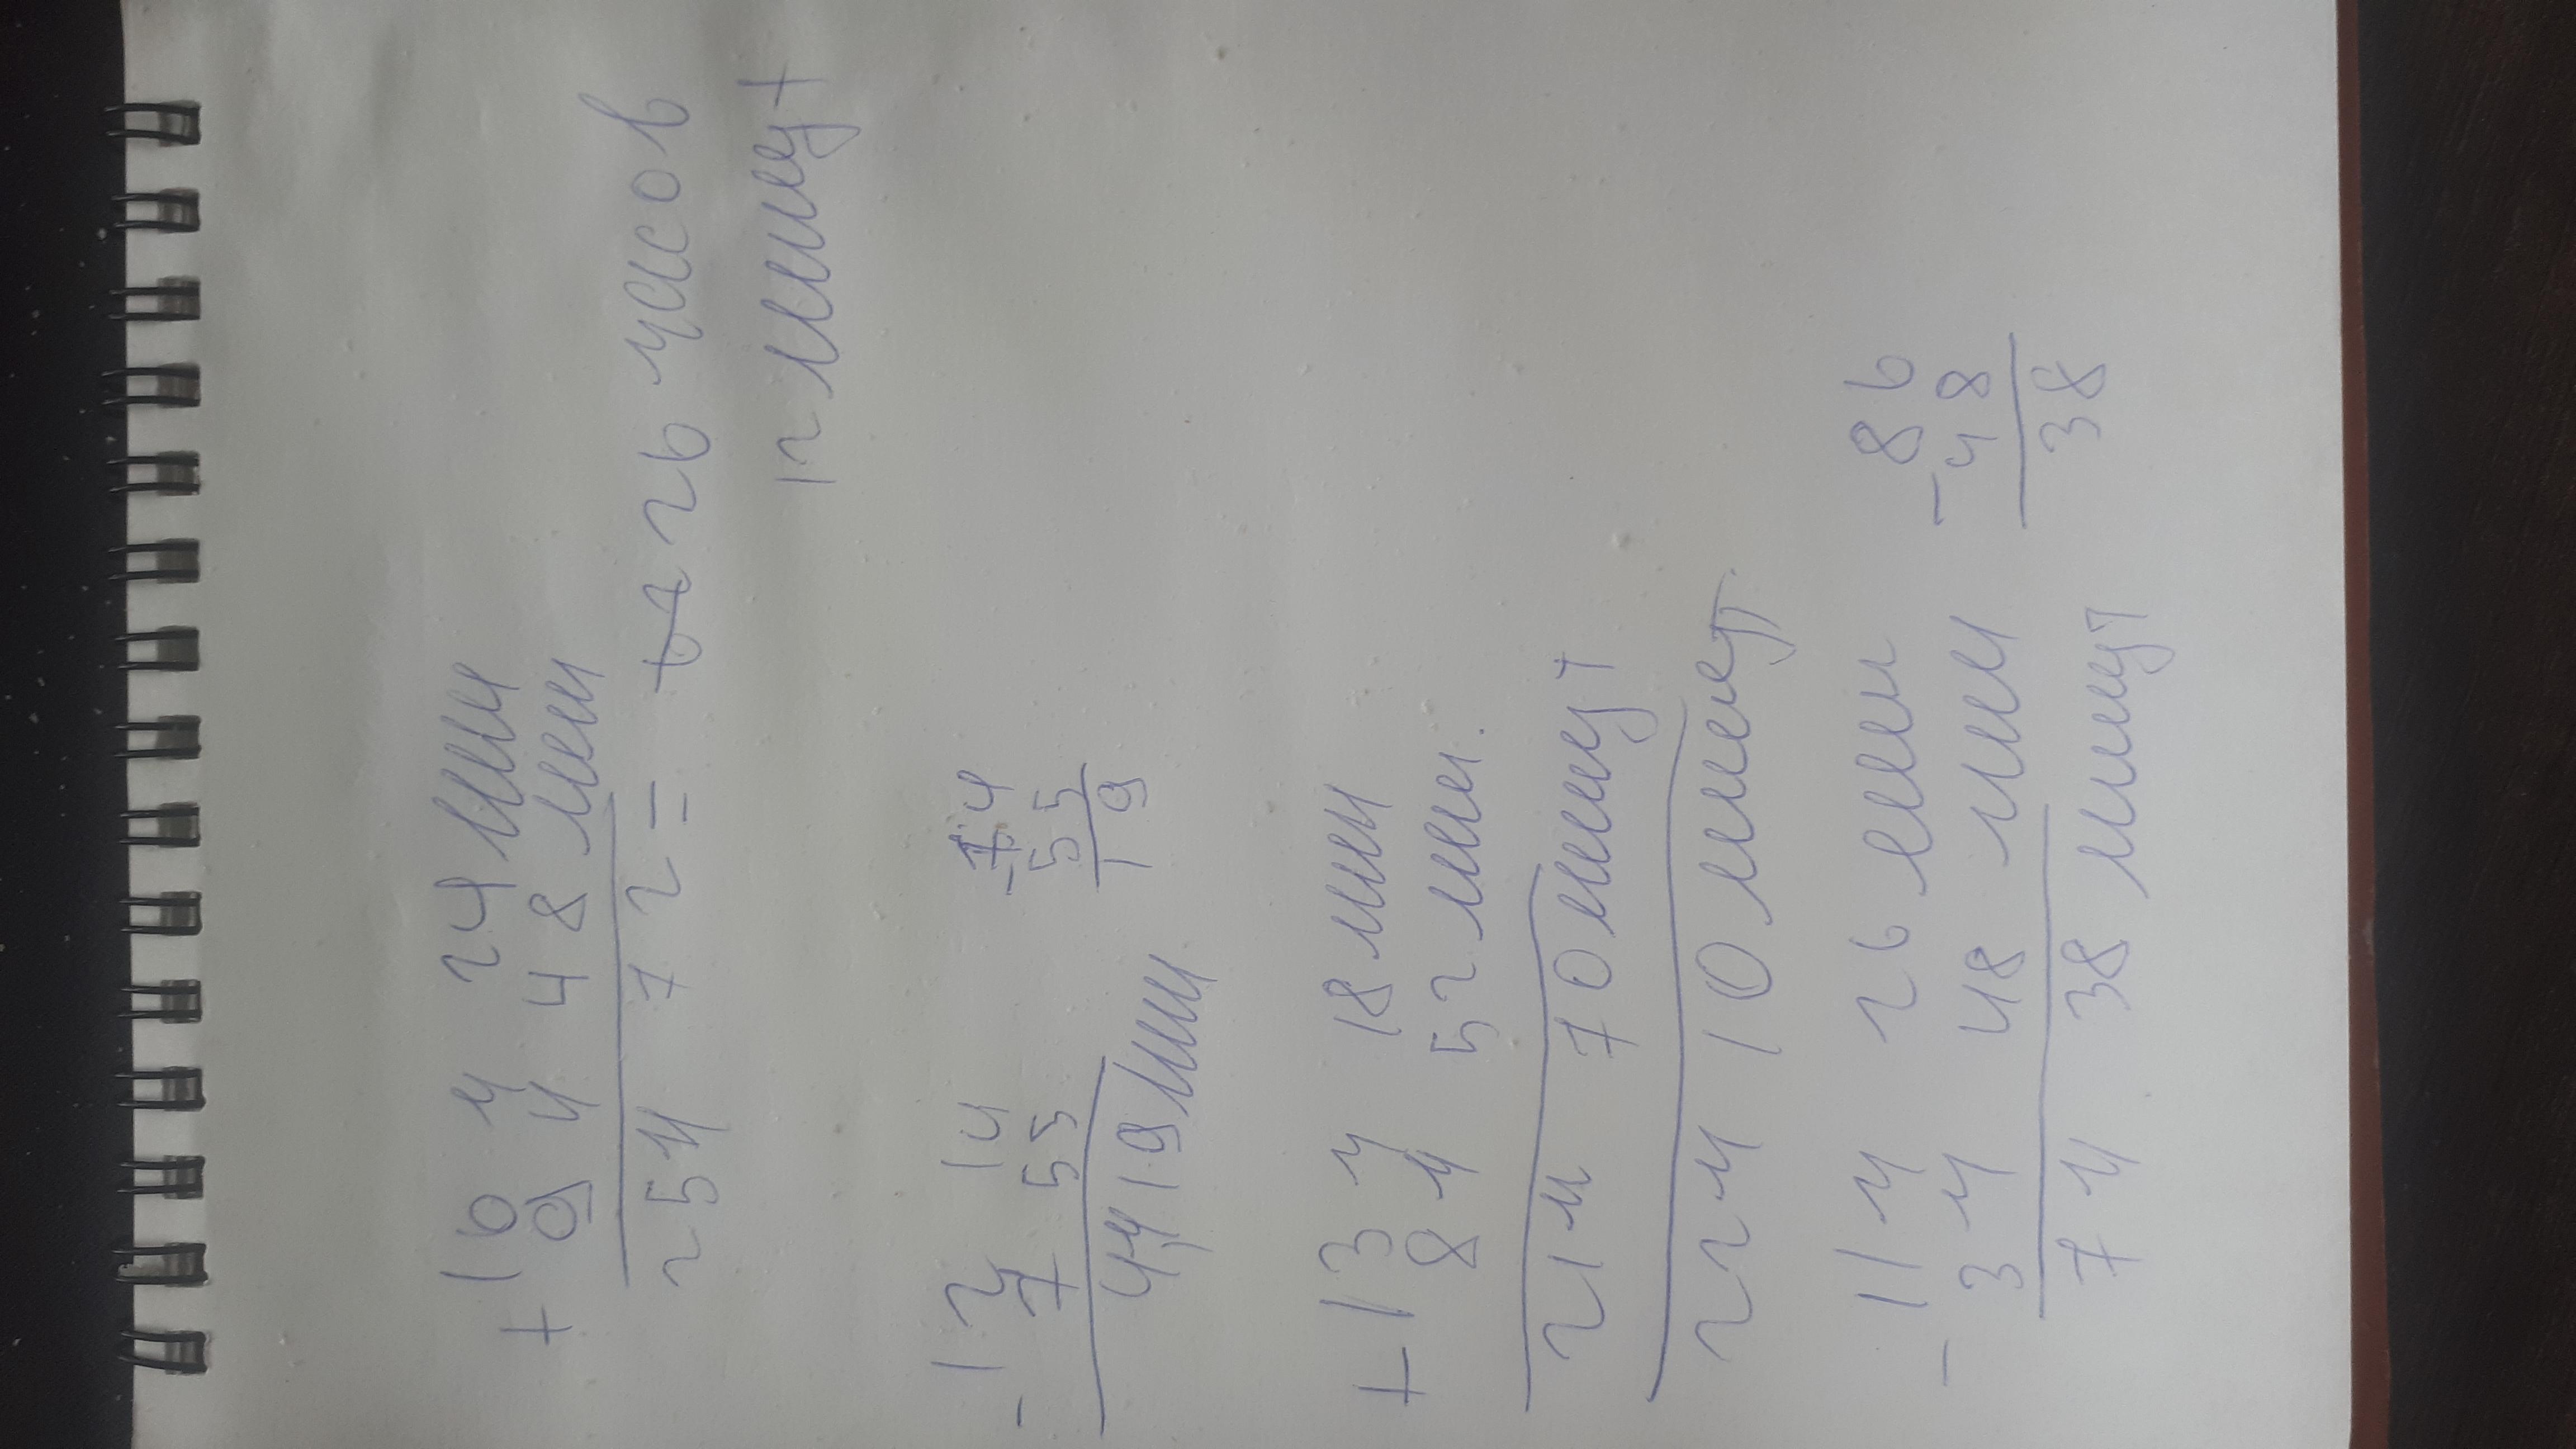 + 16 ч 24 мин
9 ч 48 мин
25 ч 72 = 26 часов
12 минут
- 12 14 - 74
7 55 55
4ч 19 мин 19
+ 13 ч 18 мин
8 ч 52 мин.
21 ч 70 минут
22 ч 10 минут
- 11 ч 26 мин - 86
3 ч 48 мин 48
7 ч 38 минут 38